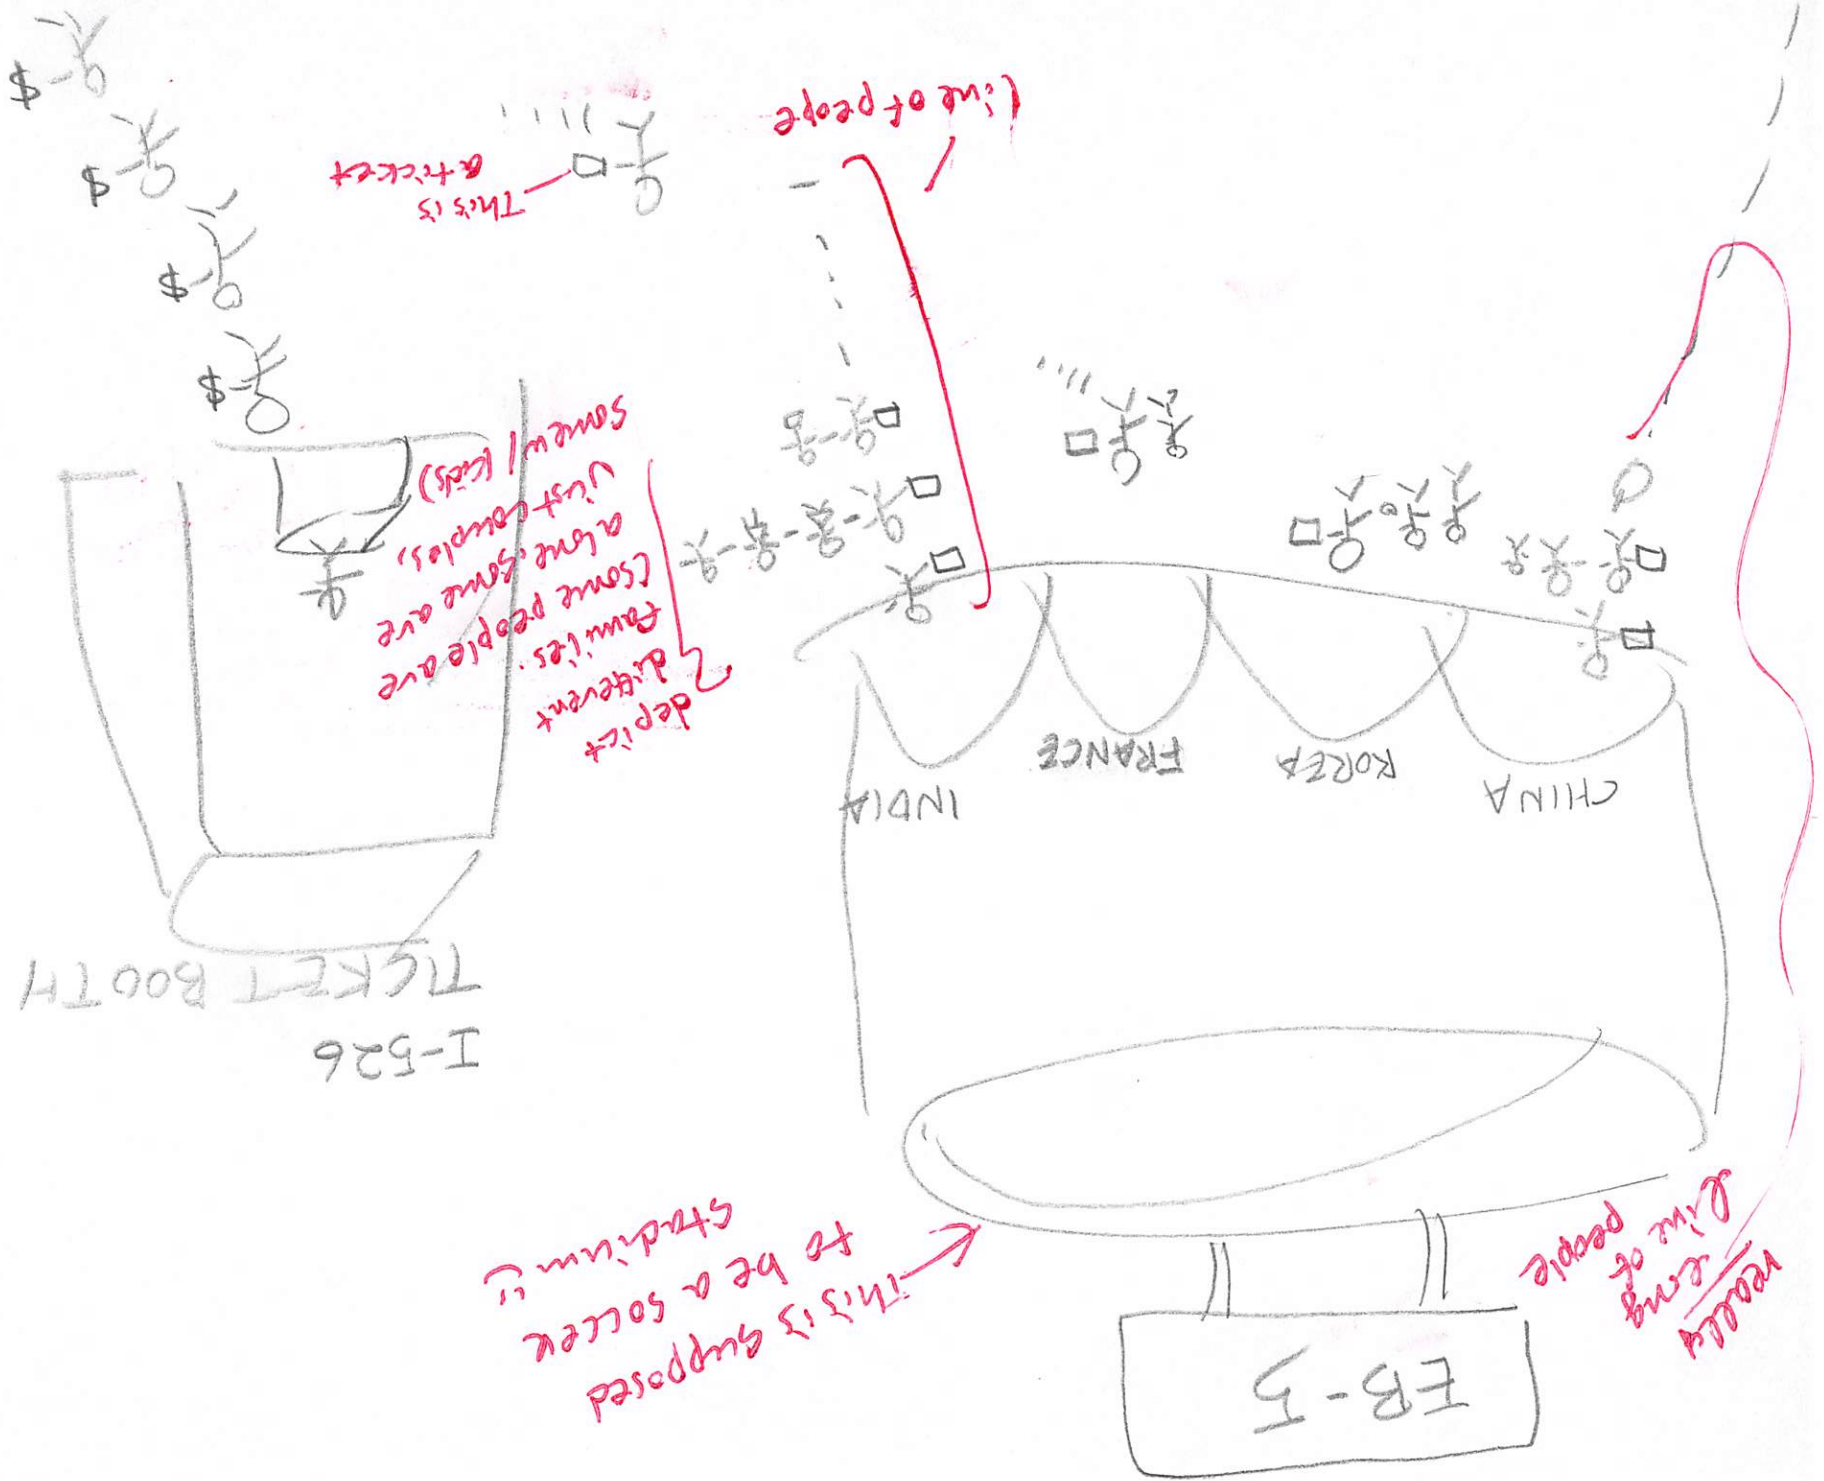 EB-5
really
long
line of
people
This is supposed
to be a soccer
stadium
I-526
TICKET BOOTH
CHINA
KOREA
FRANCE
INDIA
depict
different
families.
(some people are
alone, some are
just couples,
some w/ kids)
$
$
$
$
line of peope
This is
a ticket